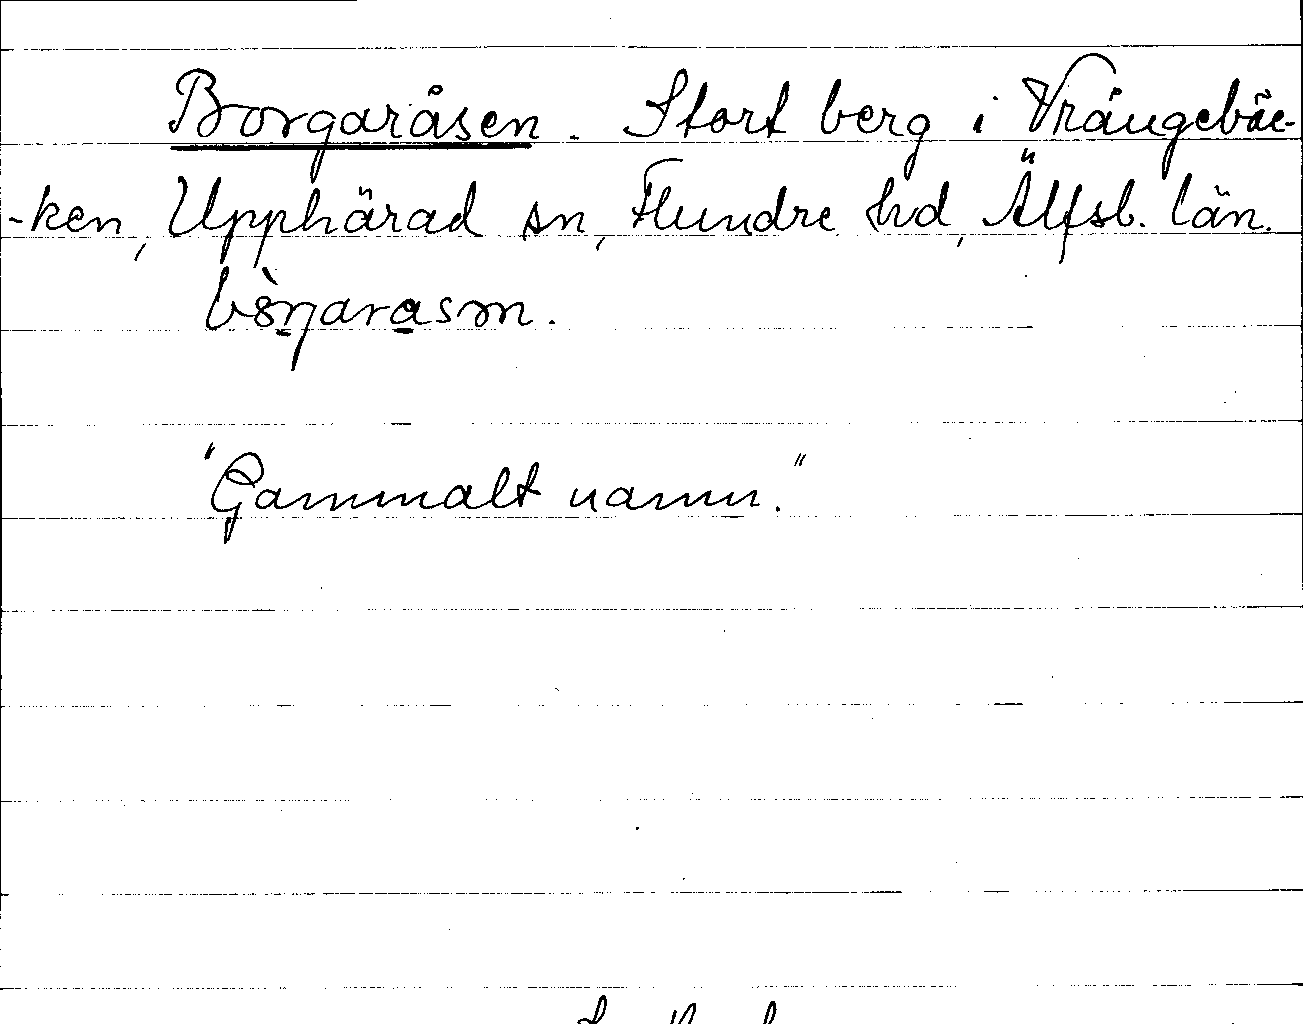 Borgaråsen. Stort berg i Vrångebäc-
-ken, Upphärad sn, Flundre hd, Älfsb. län.
"Gammalt namn."